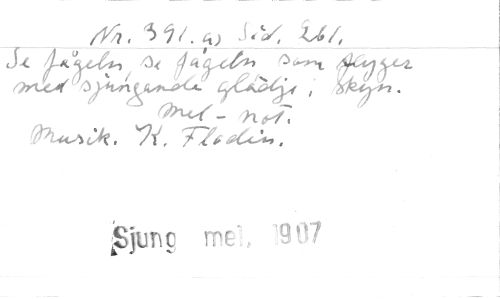 Nr. 391. a) Sid. 261.
Se fågeln, se fågeln som flyger
med sjungande glädje i skyn.
Mel-not.
Musik. K. Flodin.
Sjung mel. 1907